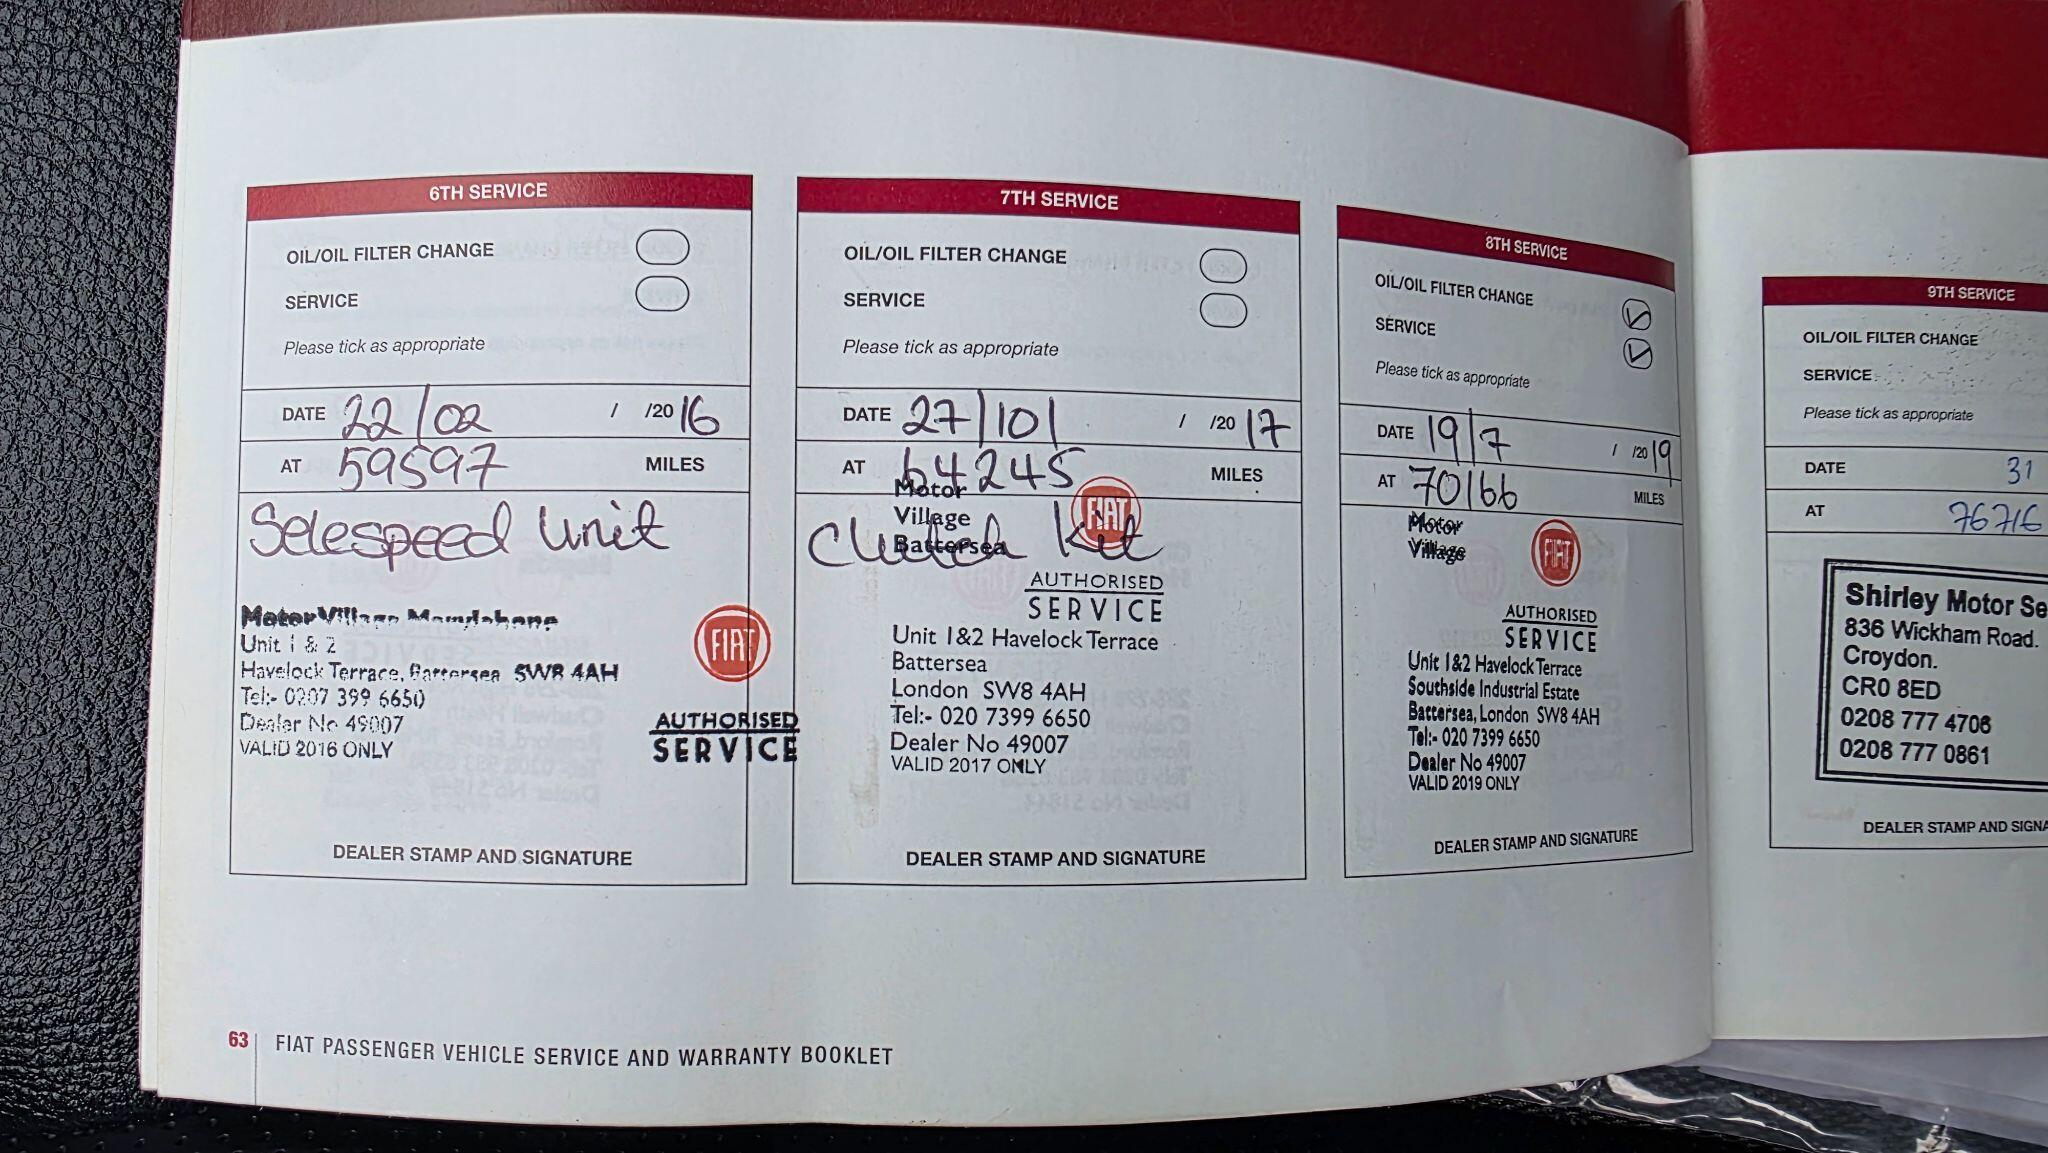 6TH SERVICE
OIL/OIL FILTER CHANGE
SERVICE
Please tick as appropriate
DATE 22/02 / /20 16
AT 59597 MILES
Selespeed Unit
Motor Village Marylebone
Unit 1 & 2
Havelock Terrace, Battersea SW8 4AH
Tel:- 0207 399 6650
Dealer No 49007
VALID 2016 ONLY
FIAT
AUTHORISED
SERVICE
DEALER STAMP AND SIGNATURE
7TH SERVICE
OIL/OIL FILTER CHANGE
SERVICE
Please tick as appropriate
DATE 27/10/ / /20 17
AT 64245 MILES
Motor
Village
Battersea
Clutch Kit
FIAT
AUTHORISED
SERVICE
Unit 1&2 Havelock Terrace
Battersea
London SW8 4AH
Tel:- 020 7399 6650
Dealer No 49007
VALID 2017 ONLY
DEALER STAMP AND SIGNATURE
8TH SERVICE
OIL/OIL FILTER CHANGE
SERVICE
Please tick as appropriate
DATE 19/7 / /20 19
AT 70166 MILES
Motor
Village
FIAT
AUTHORISED
SERVICE
Unit 1&2 Havelock Terrace
Southside Industrial Estate
Battersea, London SW8 4AH
Tel:- 020 7399 6650
Dealer No 49007
VALID 2019 ONLY
DEALER STAMP AND SIGNATURE
9TH SERVICE
OIL/OIL FILTER CHANGE
SERVICE
Please tick as appropriate
DATE 31
AT 76716
Shirley Motor Se
836 Wickham Road.
Croydon.
CR0 8ED
0208 777 4706
0208 777 0861
DEALER STAMP AND SIGNA
63 FIAT PASSENGER VEHICLE SERVICE AND WARRANTY BOOKLET